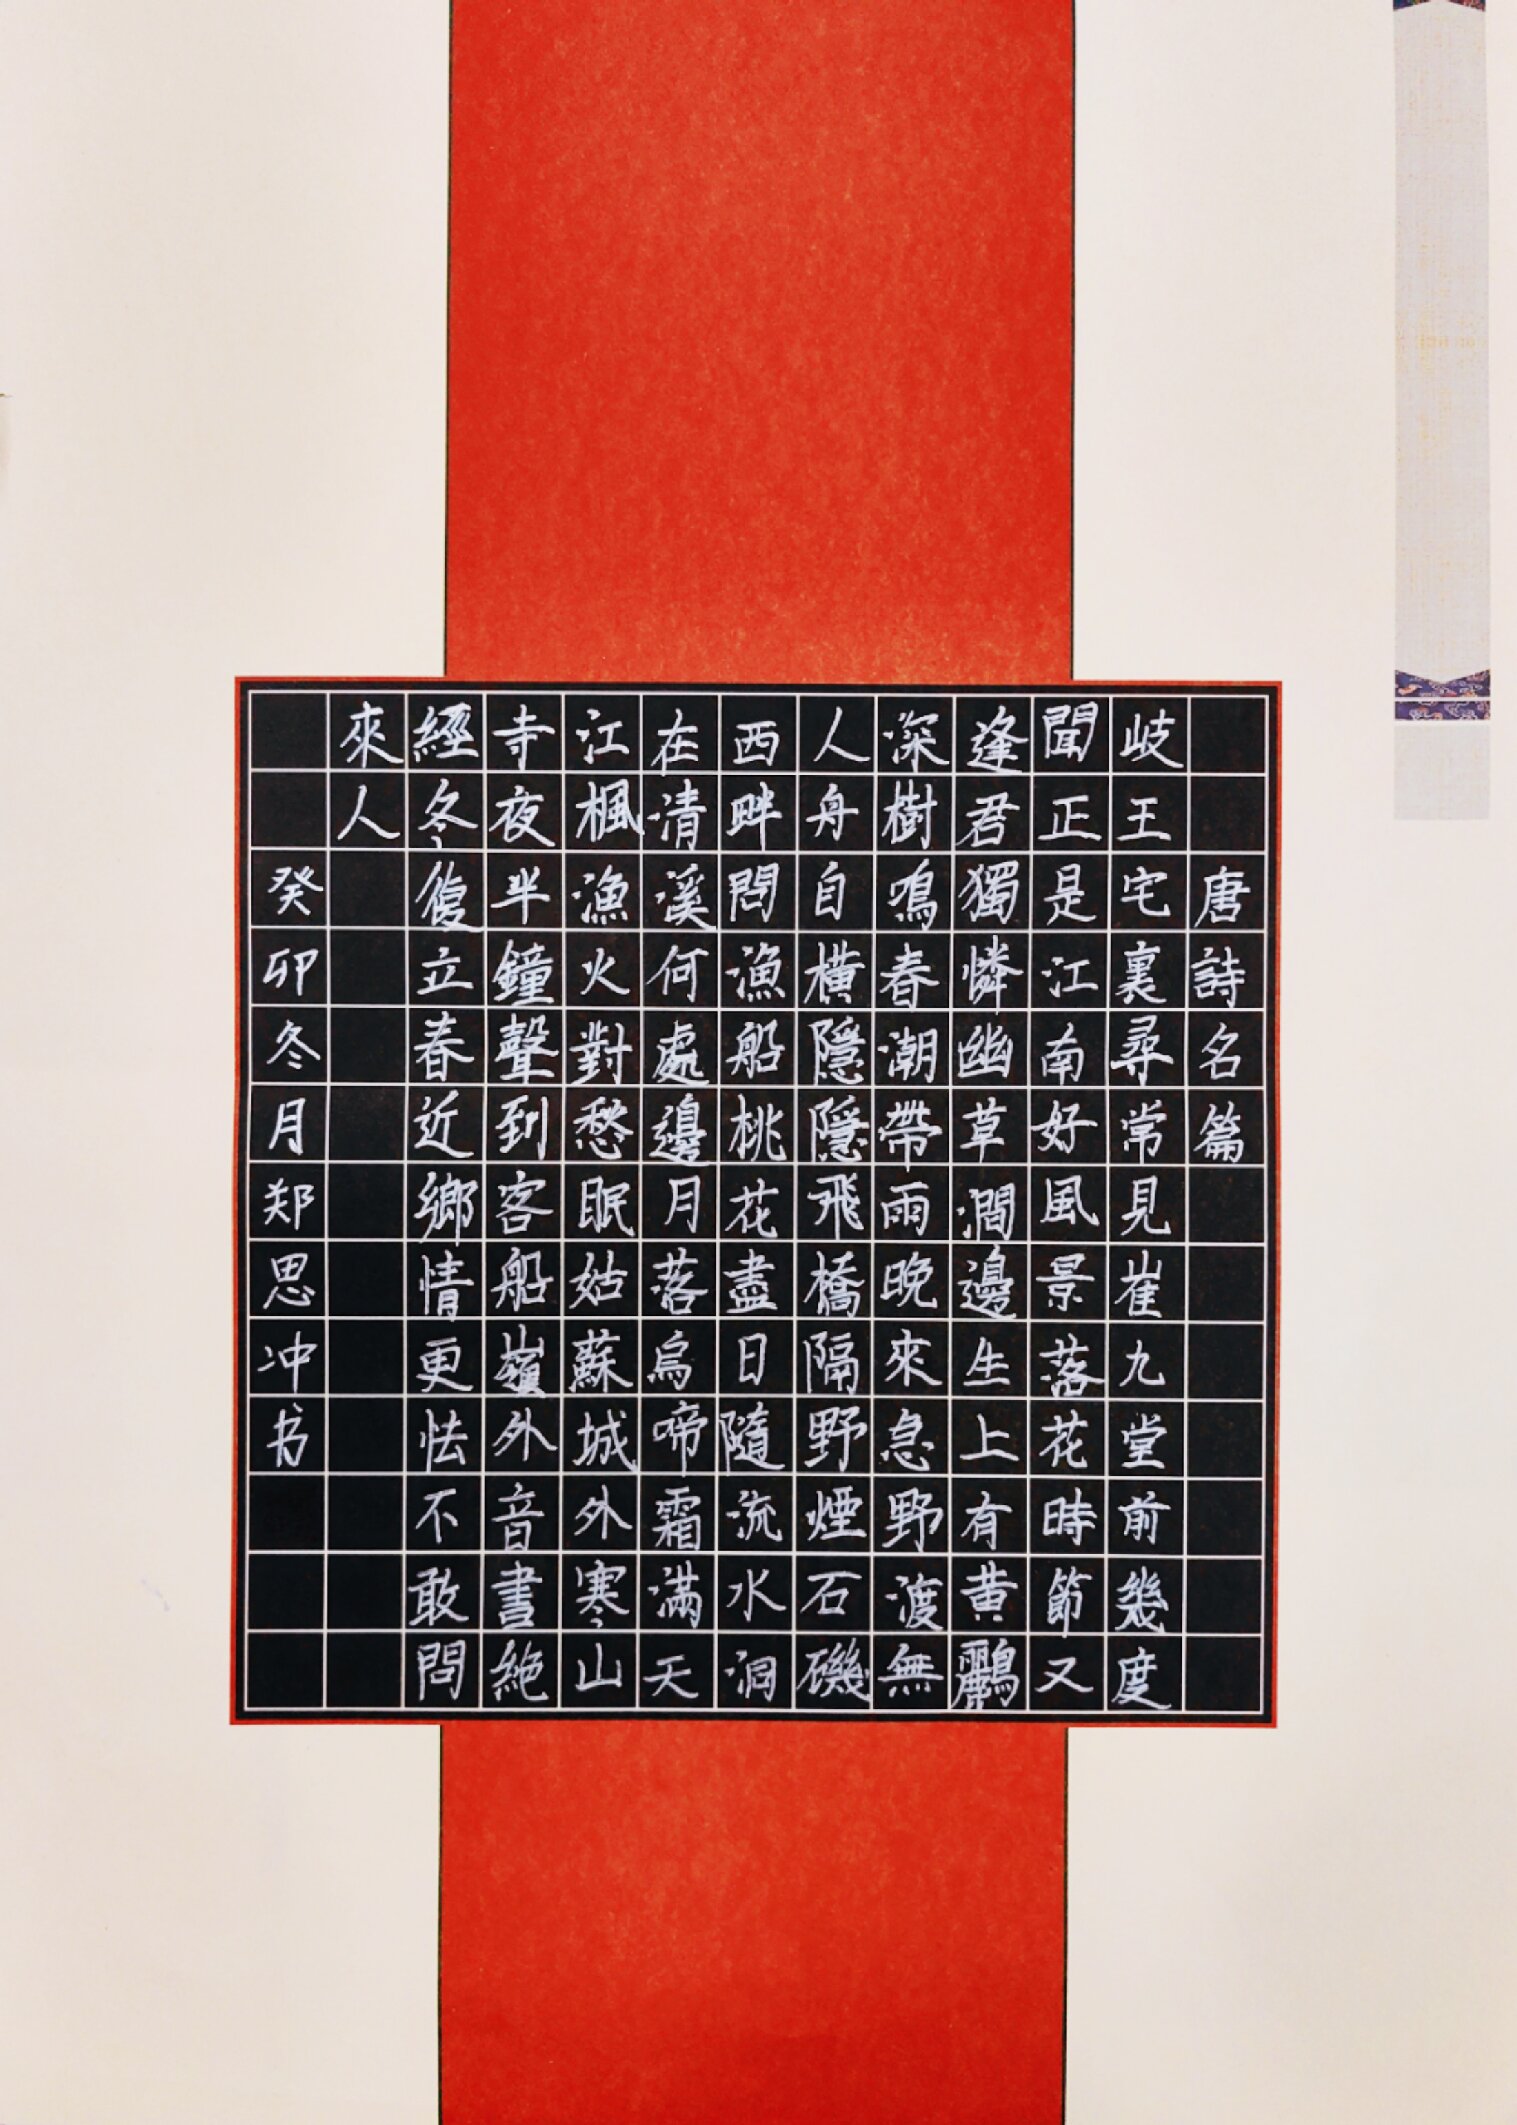 唐詩名篇
歧王宅裏尋常見崔九堂前幾度
聞正是江南好風景落花時節又
逢君獨憐幽草澗邊生上有黄鸝
深樹鳴春潮帶雨晚來急野渡無
人舟自橫隱隱飛橋隔野煙石磯
西畔問漁船桃花盡日隨流水洞
在清溪何處邊月落烏啼霜滿天
江楓漁火對愁眠姑蘇城外寒山
寺夜半鐘聲到客船嶺外音書絶
經冬復立春近鄉情更怯不敢問
來人
癸卯冬月郑思冲书